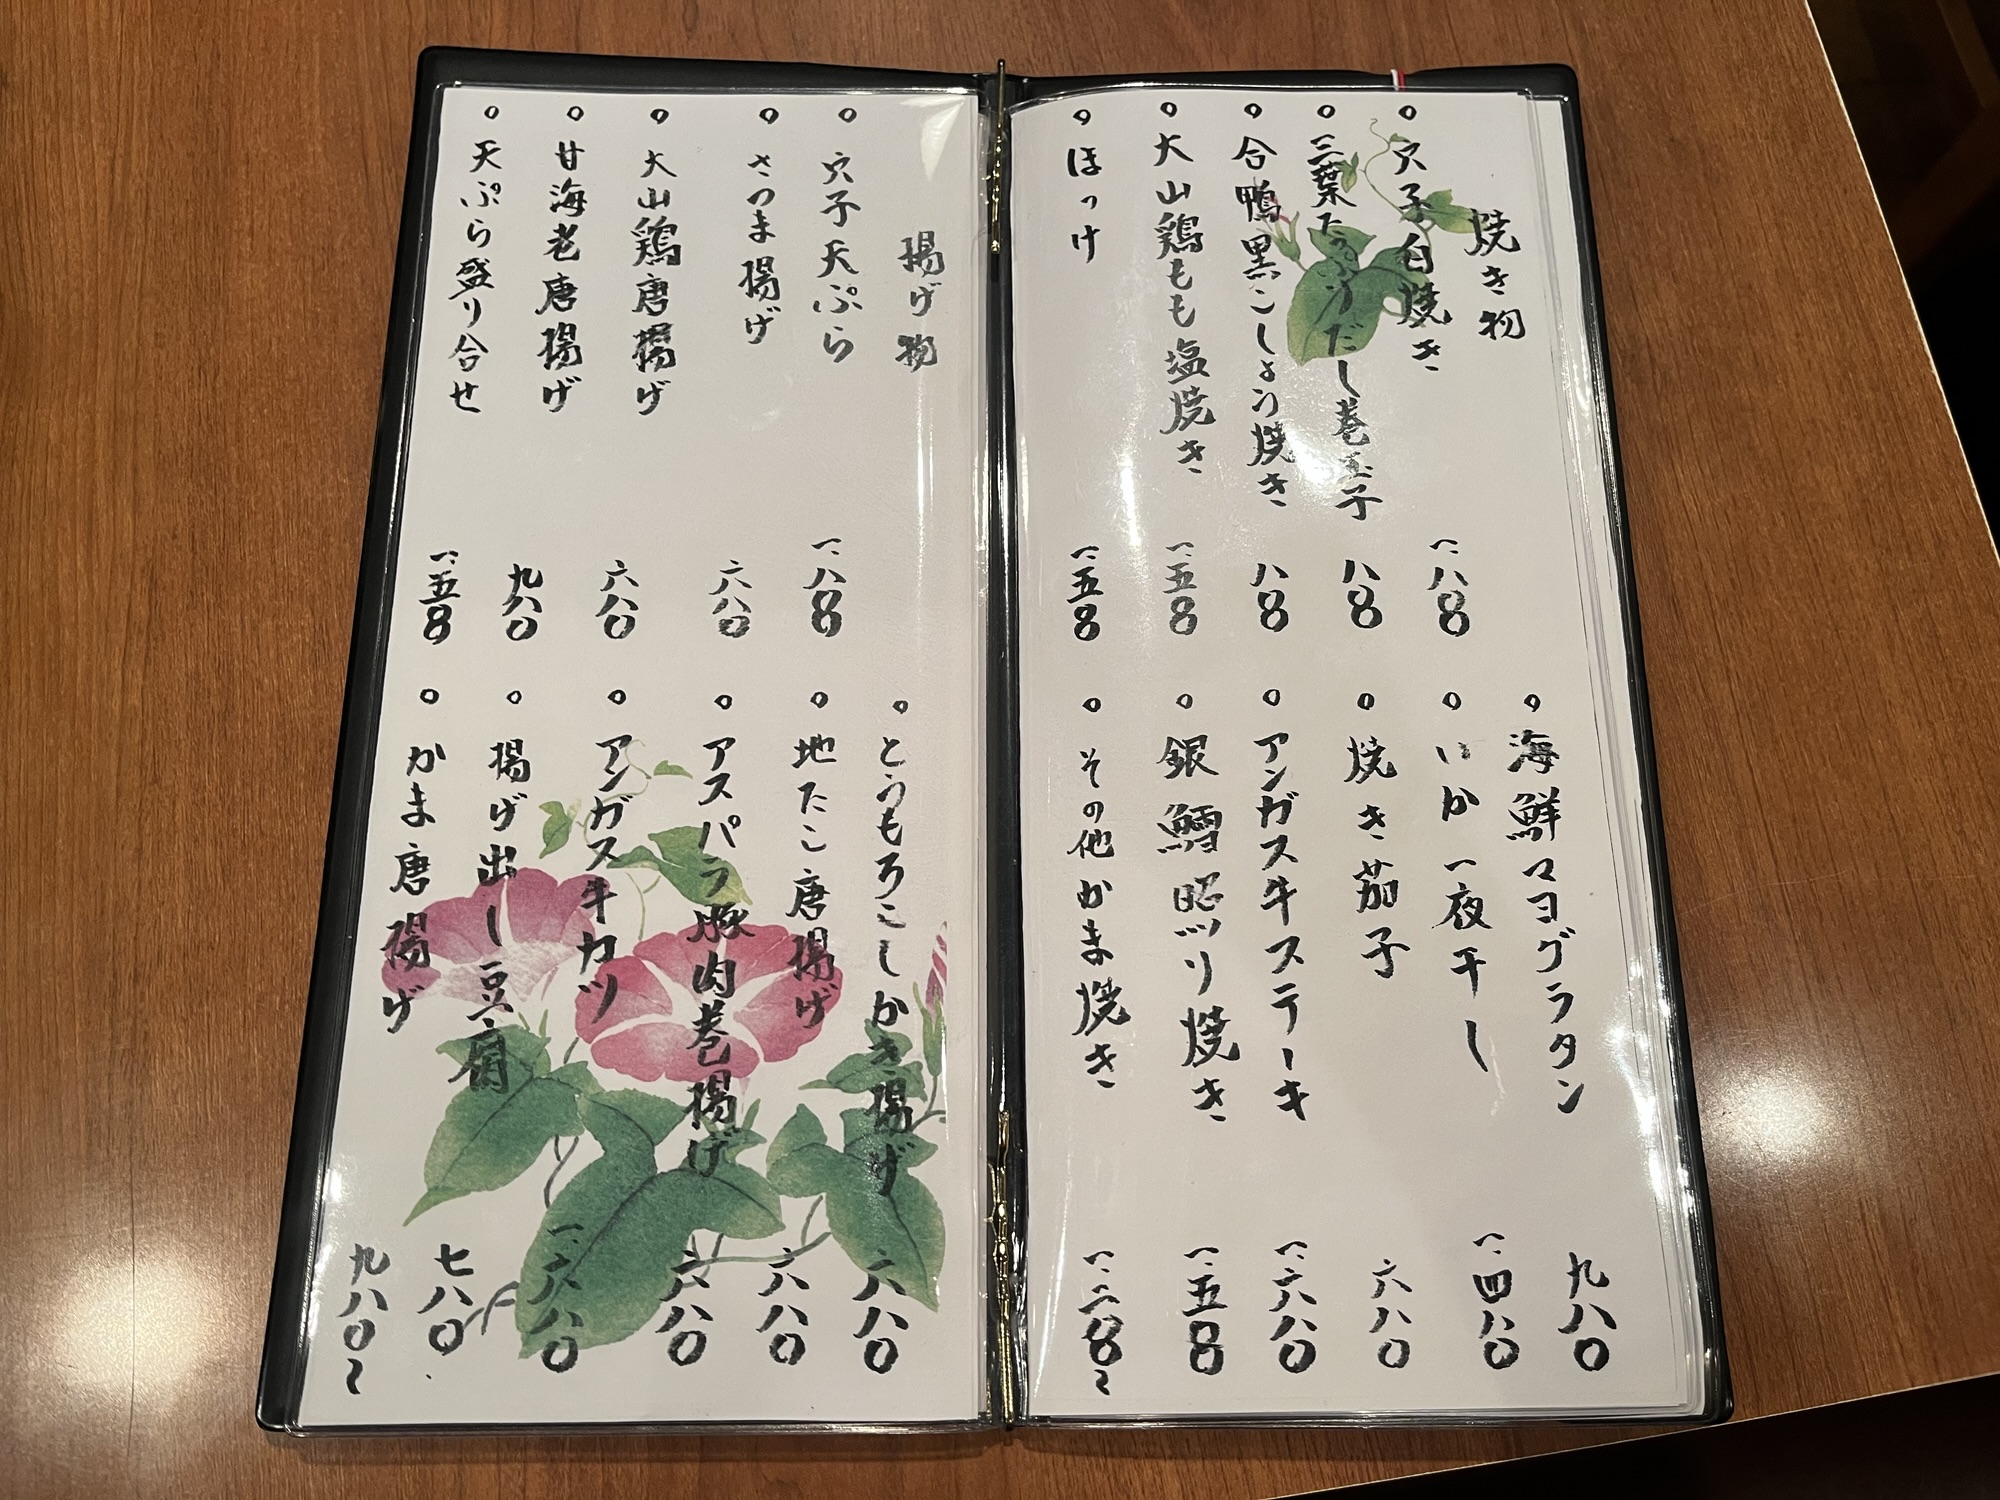 焼き物
。穴子白焼き 一、八〇〇
。三葉たっぷりだし巻玉子 八〇〇
。合鴨黒こしょう焼き 八〇〇
。大山鶏もも塩焼き 一、五〇〇
。ほっけ 一、五〇〇
。海鮮マヨグラタン 九八〇
。いか一夜干し 一、四八〇
。焼き茄子 六八〇
。アンガス牛ステーキ 一、六八〇
。銀鱈照り焼き 一、五〇〇
。その他かま焼き 一、二〇〇〜
揚げ物
。穴子天ぷら 一、八〇〇
。さつま揚げ 六八〇
。大山鶏唐揚げ 六八〇
。甘海老唐揚げ 九八〇
。天ぷら盛り合せ 一、五〇〇
。とうもろこしかき揚げ 六八〇
。地たこ唐揚げ 六八〇
。アスパラ豚肉巻揚げ 六八〇
。アンガス牛カツ 一、六八〇
。揚げ出し豆腐 七八〇
。かま唐揚げ 九八〇〜